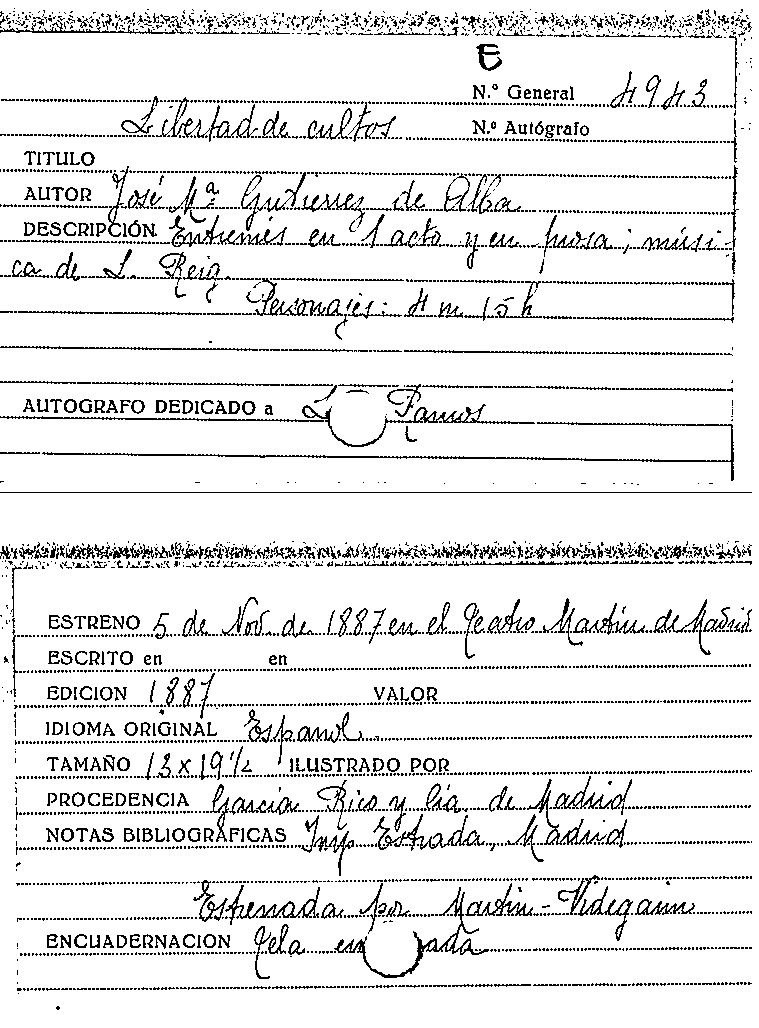 E
N.º General 4943
Libertad de cultos N.º Autógrafo
TITULO
AUTOR José Mª Gutierrez de Alba
DESCRIPCIÓN Entremés en 1 acto y en prosa; músi-
ca de L. Reig.
Personajes: 4 m 15 h
AUTOGRAFO DEDICADO a Ramos
ESTRENO 5 de Nov. de 1887 en el Teatro Martín de Madrid
ESCRITO en en
EDICION 1887 VALOR
IDIOMA ORIGINAL Español.
TAMAÑO 13 x 19 1/2 ILUSTRADO POR
PROCEDENCIA García Rico y Cía. de Madrid
NOTAS BIBLIOGRÁFICAS Imp Estrada, Madrid
Estrenada por Martin-Videgain
ENCUADERNACION Tela